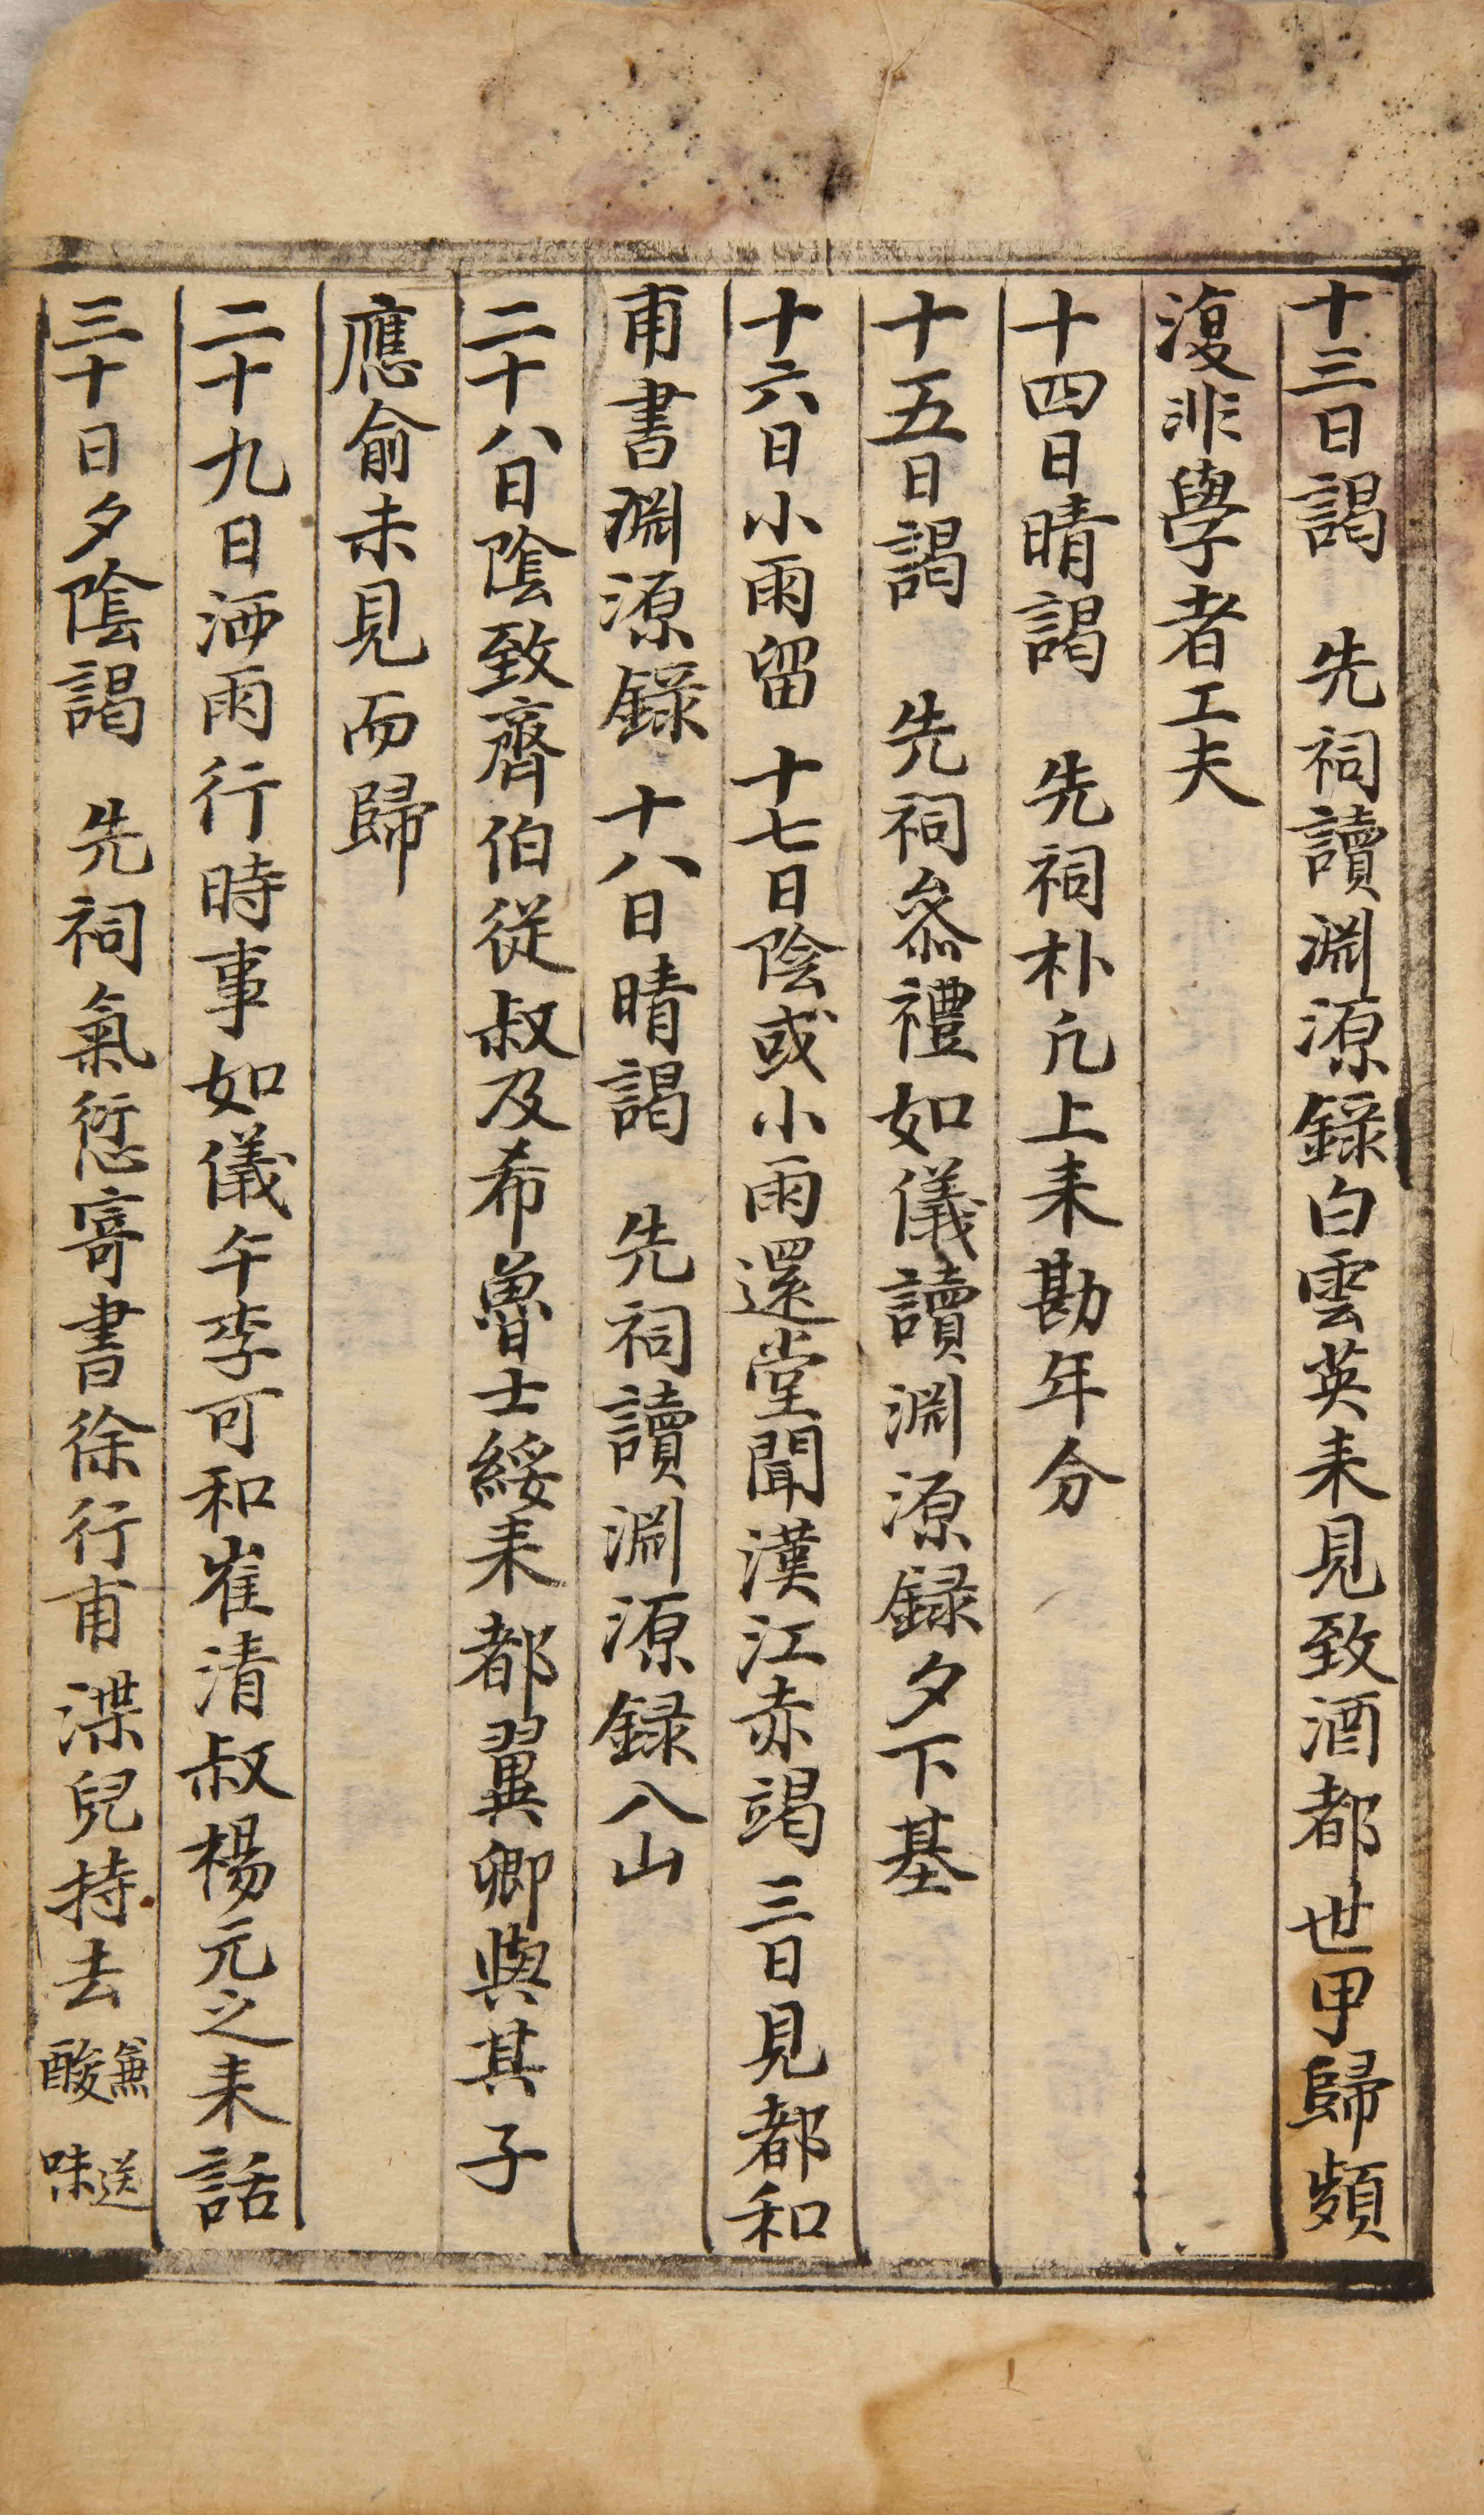 十三日謁　先祠讀淵源錄白雲英来見致酒都世甲歸頻
復非學者工夫
十四日晴謁　先祠朴凢上来勘年分
十五日謁　先祠叅禮如儀讀淵源録夕下基
十六日小雨留　十七日陰或小雨還堂聞漢江赤竭三日見都和
甫書淵源錄　十八日晴謁　先祠讀淵源録八山
二十八日隂致齊伯従叔及希魯士綏来都翼卿與其子
應俞未見而歸
二十九日洒雨行時事如儀午李可和崔清叔楊元之来話
三十日夕隂謁　先祠氣愆寄書徐行甫渫兒持去 兼送酸味